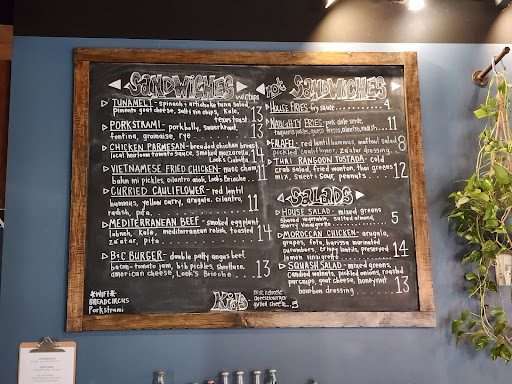 SANDWICHES w/chips
TUNAMELT - spinach + artichoke tuna salad,
pimento goat cheese, salt nn vin chips, Kale,
texas toast 13
PORKSTRAMI - porkbelly, sauerkraut,
fontina, gremaise, rye 13
CHICKEN PARMESAN - breaded chicken breast
local heirloom tomato sauce, smoked mozzarella,
Leok's Ciabatta 11
VIETNAMESE FRIED CHICKEN - nuoc cham,
bahn mi pickles, cilantro aioli, Leok's Brioche 11
CURRIED CAULIFLOWER - red lentil
hummus, yellow curry, arugula, cilantro,
radish, pita 11
MEDITERRANEAN BEEF - smoked eggplant
labneh, mediterranean relish, toasted
za'atar, pita 14
B+C BURGER - double patty angus beef
bacon-tomato jam, b+b pickles, shrettuce,
american cheese, Leok's Brioche 13
#WIFI#
BREADCIRCUS
Porkstrami
not SANDWICHES
HOUSE FRIES fry sauce 4
NAUGHTY FRIES - pork chile verde,
queso fresco, cilantro 11
FALAFEL - red lentil hummus, salad
pickled cauliflower, za'atar dressing 8
THAI RANGOON TOSTADA - cold
crab salad, fried wonton, thai greens
mix, sweet + sour, peanuts 12
SALADS
HOUSE SALAD - mixed greens
shaved vegetable, salted almond,
sherry vinaigrette 5
MOROCCAN CHICKEN - arugula,
grapes, feta, harissa marinated
cucumbers, crispy lentils, preserved
lemon vinaigrette 14
SQUASH SALAD - mixed greens,
candied walnuts, pickled onions, roasted
parsnips, goat cheese, honeynut
bourbon dressing 13
KIDS
mac n cheese
cheeseburger
grilled cheese 5